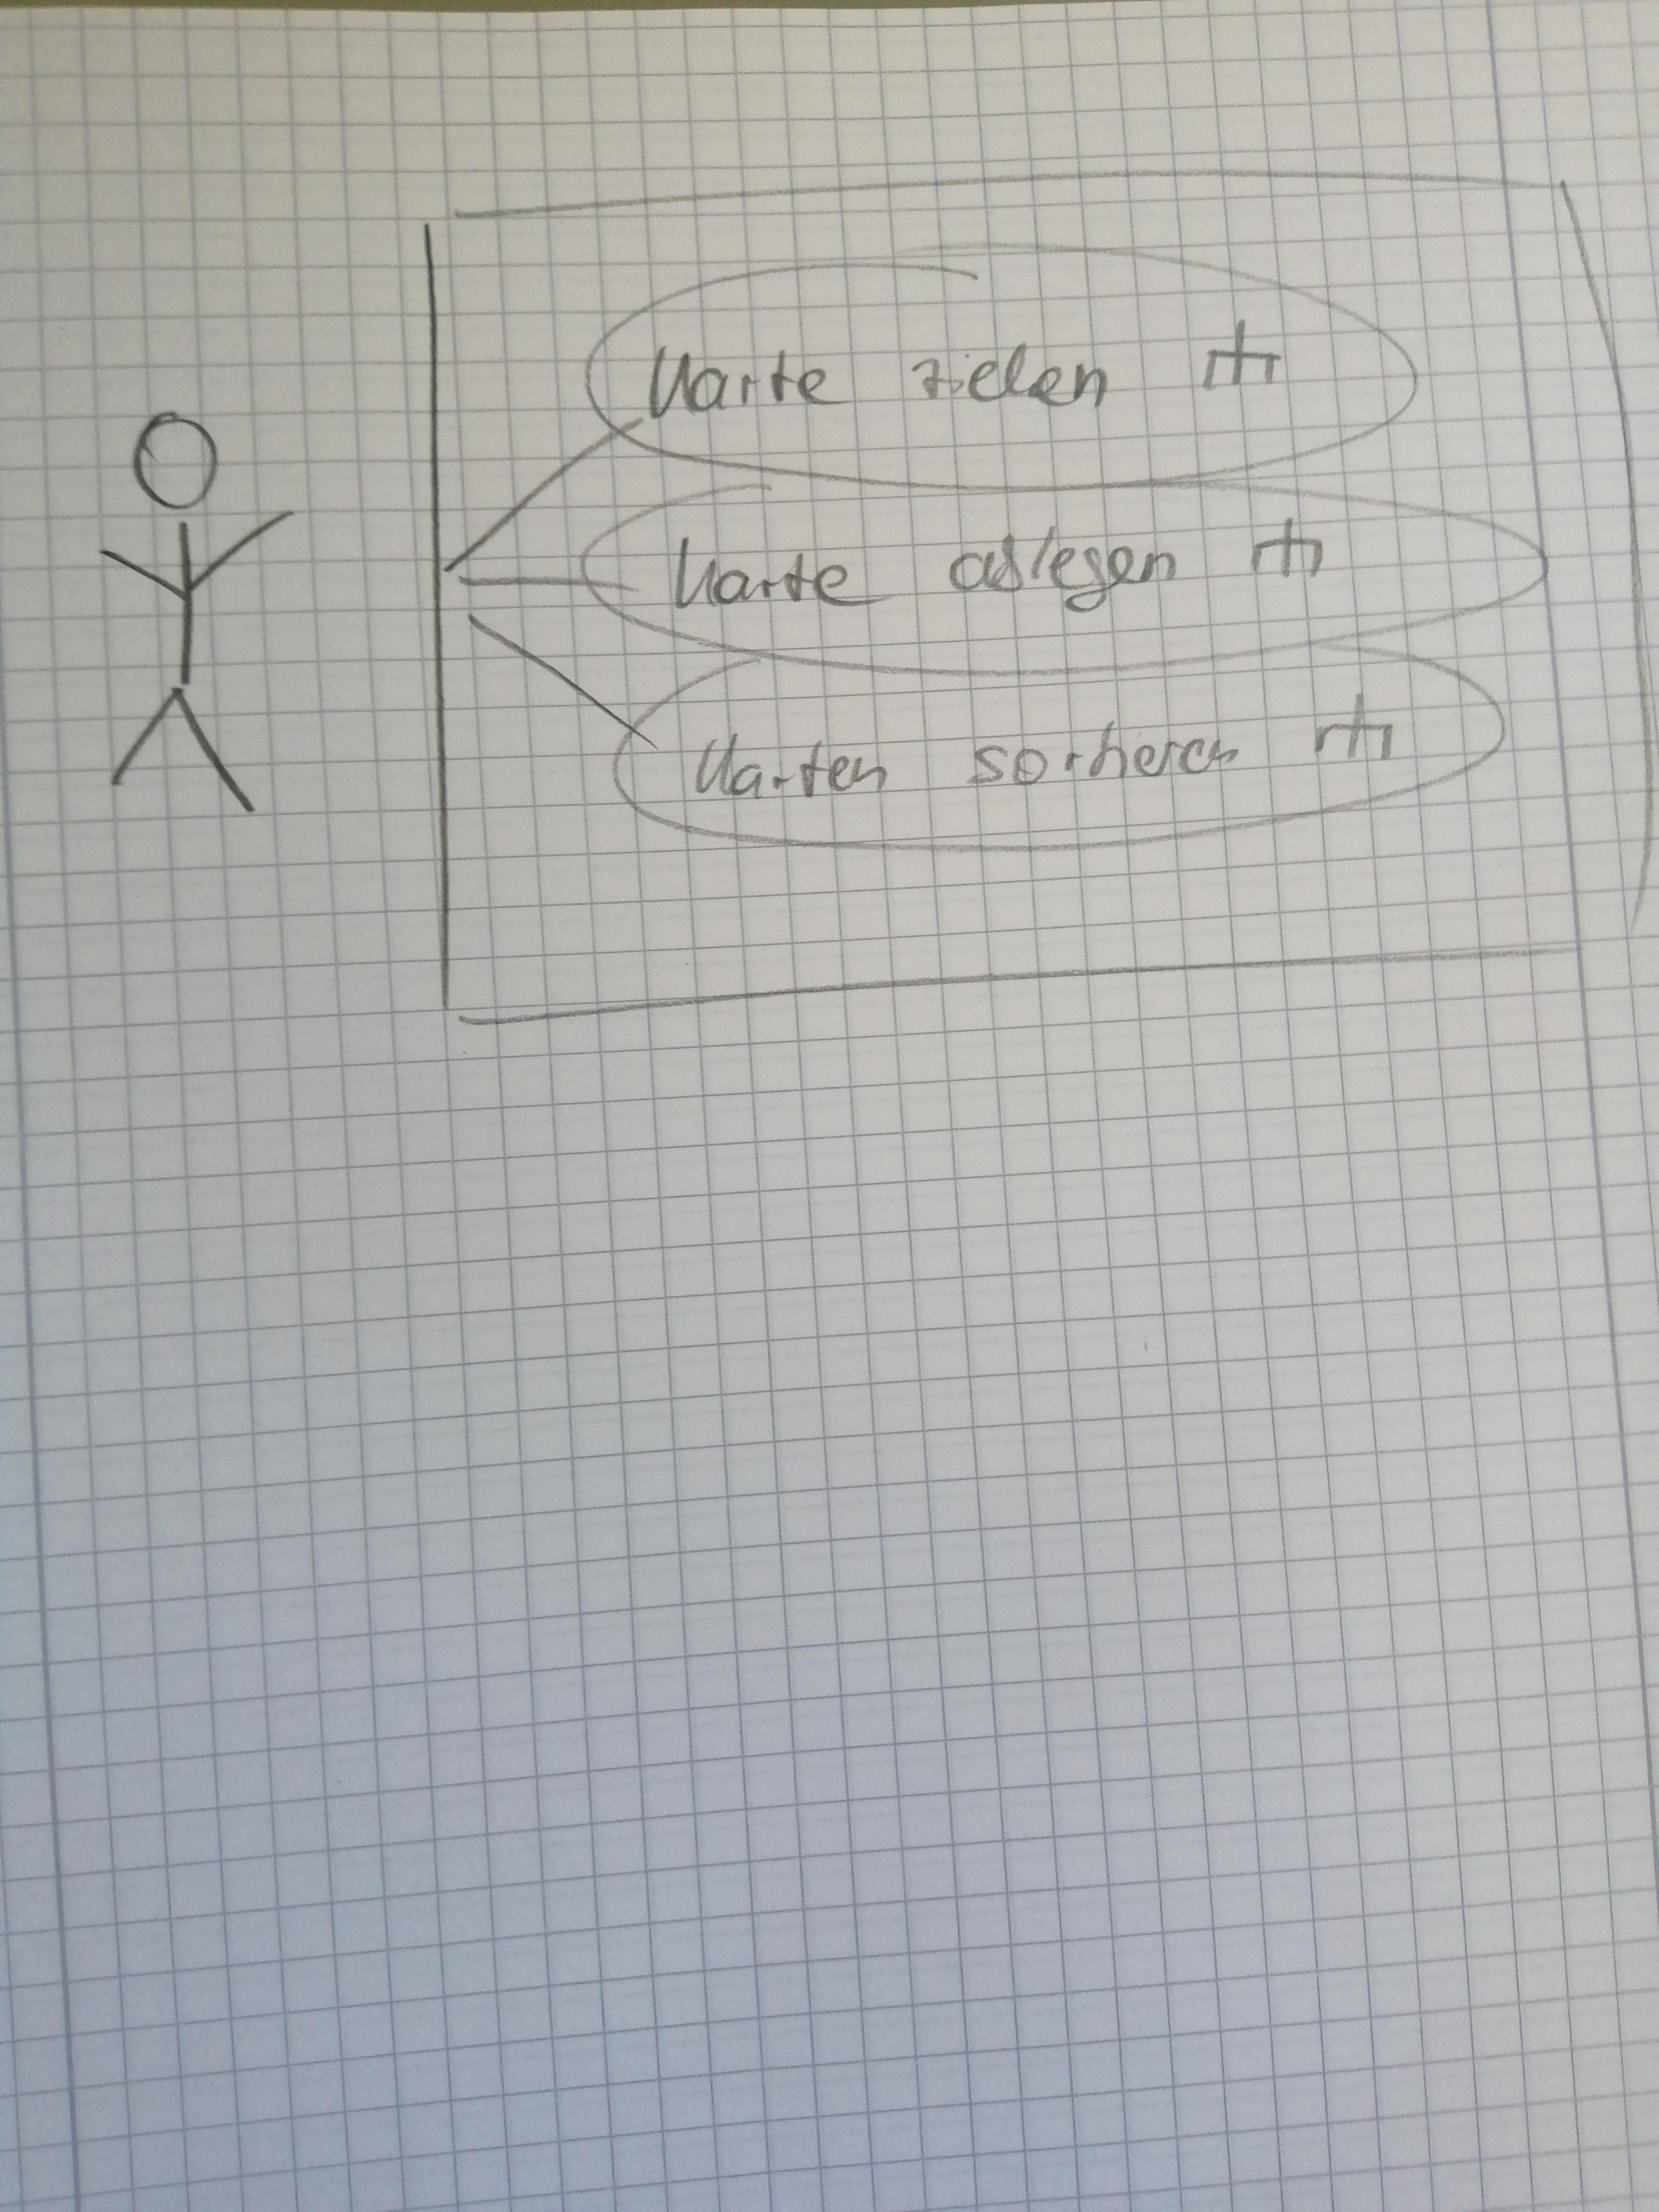 Karte ziehen
Karte ablegen
Karten sortieren